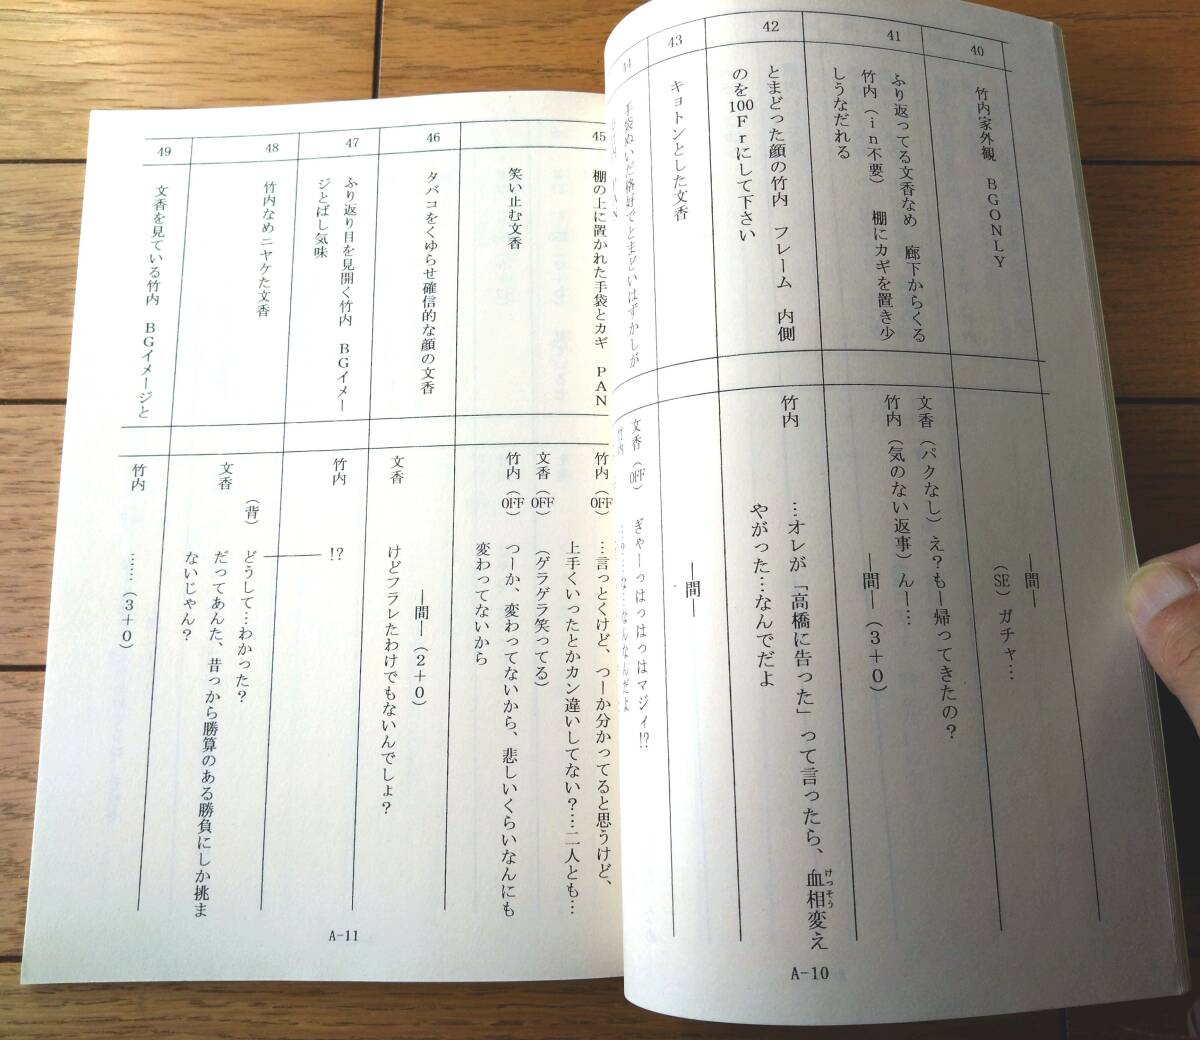 40
竹内家外観 BGONLY
―間―
(SE) ガチャ…
41
ふり返ってる文香なめ 廊下からくる
竹内(in不要) 棚にカギを置き少
しうなだれる
文香(パクなし)え?もー帰ってきたの?
竹内(気のない返事)んー…
―間―(3+0)
42
とまどった顔の竹内 フレーム 内側
のを100Frにして下さい
竹内 …オレが「高橋に告った」って言ったら、血相変え
けっそう
やがった…なんでだよ
43
キョトンとした文香
―間―
44
手袋ぬいだ格好でとまどいはずかしが
文香(OFF) ぎゃーっはっはっはマジィ!?
竹内
A-10
45
棚の上に置かれた手袋とカギ PAN
笑い止む文香
竹内(OFF) …言っとくけど、つーか分かってると思うけど、
上手くいったとかカン違いしてない?…二人とも…
文香(OFF)(ゲラゲラ笑ってる)
竹内(OFF) つーか、変わってないから、悲しいくらいなんにも
変わってないから
46
タバコをくゆらせ確信的な顔の文香
―間―(2+0)
文香 けどフラレたわけでもないんでしょ?
47
ふり返り目を見開く竹内 BGイメー
ジとばし気味
竹内 !?
48
竹内なめニヤケた文香
(背) どうして…わかった?
文香 だってあんた、昔っから勝算のある勝負にしか挑ま
ないじゃん?
49
文香を見ている竹内 BGイメージと
竹内 ……(3+0)
A-11